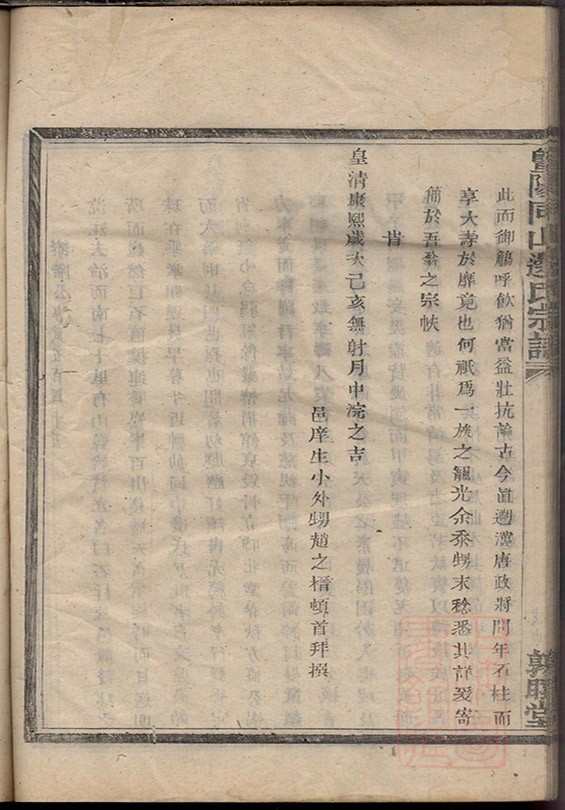 暨陽同山邊氏宗譜
此而御觴呼飲猶當益壯抗論古今眞邈漢唐政將問年石柱而
享大壽於靡竟也何祇爲一族之寵光余忝甥末稔悉其詳爰寄
簡於吾翁之宗帙
皇清康熙歲次己亥無射月中浣之吉
邑庠生小外甥趙之榗頓首拜撰
敦睦堂